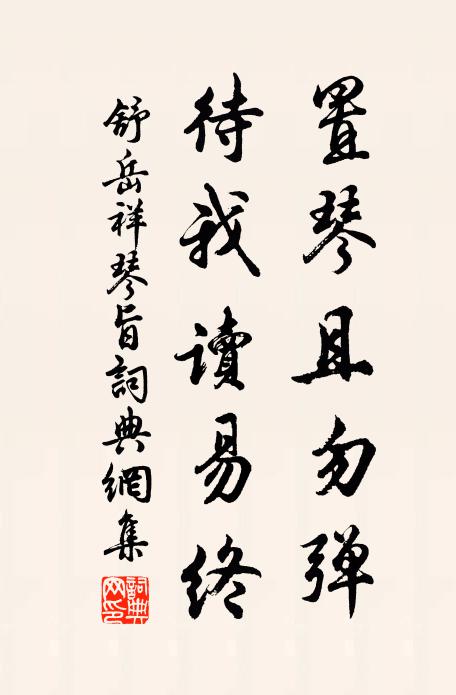 置琴且勿弹
待我讀易终
舒岳祥琴旨詞典網集
詞典网印